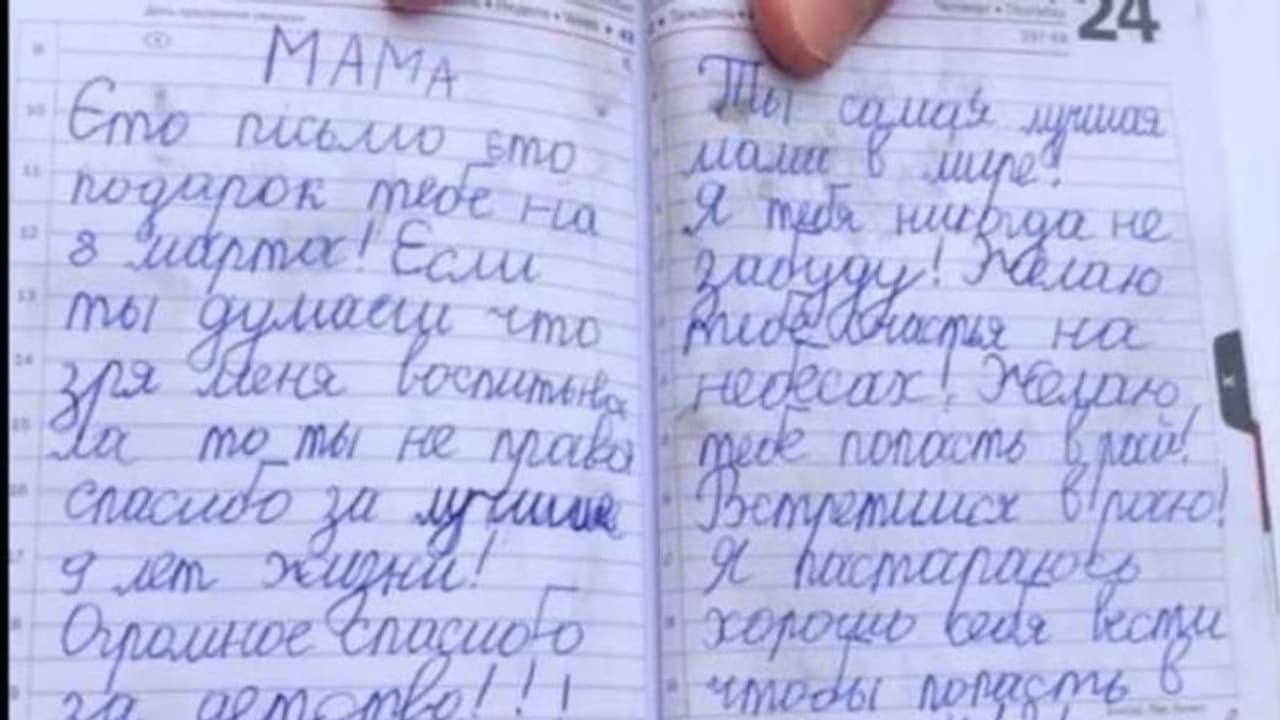 24
МАМА
Єто пісьмо ето
подарок тебе на
8 марта! Єсли
ты думаеш что
зря меня воспитыва
ла то ты не права
спасибо за лучшие
9 лет жизни!
Огромное спасибо
за детство!!!
Ты самая лучшая
мама в мире!
Я тебя никогда не
забуду! Желаю
тебе счастья на
небесах! Желаю
тебе попасть в рай!
Встретимся в раю!
Я пастараюсь
хорошо себя вести
чтобы попасть в